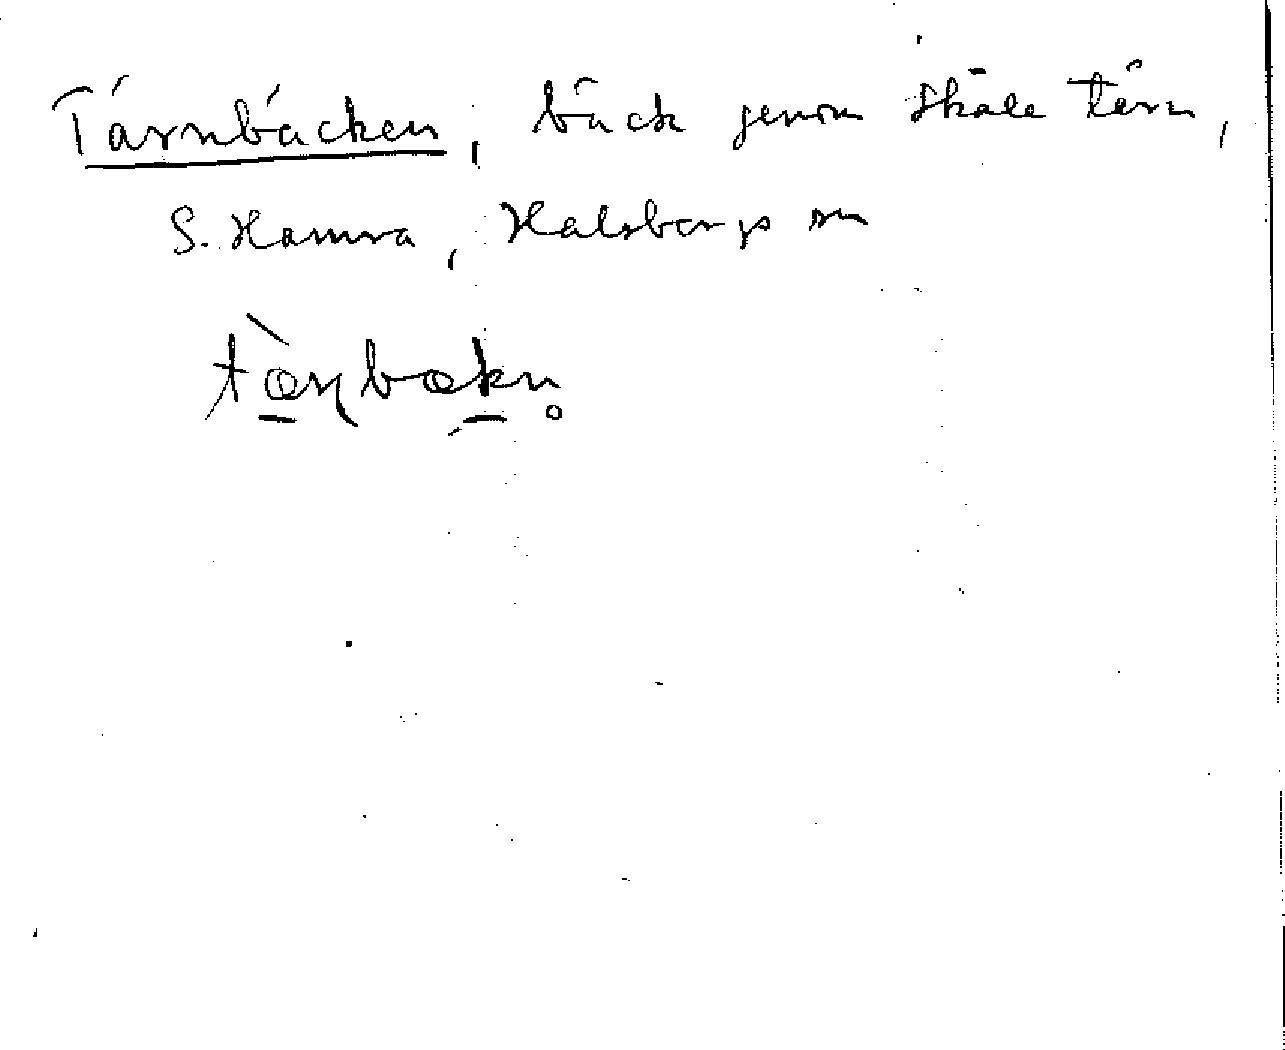 Tärnbäcken, bäck genom Skåle tärn,
S. Hamra, Hallsbergs sn
tæ̀ɳbækn̥